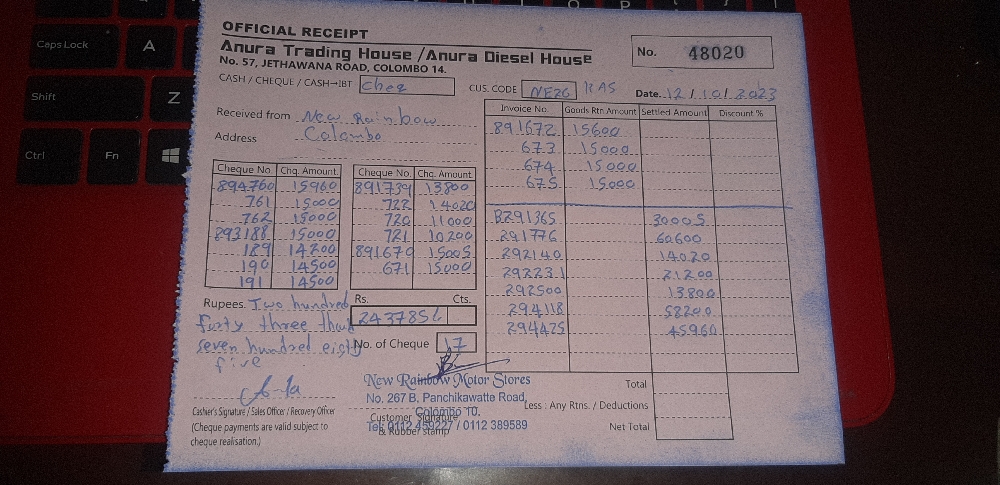 OFFICIAL RECEIPT
Anura Trading House / Anura Diesel House
No. 57, JETHAWANA ROAD, COLOMBO 14.
No. 48020
CASH / CHEQUE / CASH→IBT Cheq
CUS. CODE NE26 RAS
Date. 12/10/2023
Received from New Rainbow
Address Colombo
Invoice No. Goods Rtn Amount Settled Amount Discount %
891672 15600
673 15000
674 15000
675 15000
B291365 30005
291776 60600
292140 14020
292231 21200
292500 13800
294118 58200
294425 45960
Cheque No. Chq. Amount
894760 15960
761 15000
762 15000
893188 15000
189 14200
190 14500
191 14500
Cheque No. Chq. Amount
891739 13800
722 14020
720 11000
721 10200
891670 15005
671 15000
Rupees. Two hundred
forty three thou
seven hundred eighty
five
Rs. Cts.
243785
No. of Cheque 17
Casher's Signature / Sales Officer / Recovery Officer
(Cheque payments are valid subject to
cheque realisation.)
New Rainbow Motor Stores
No. 267 B, Panchikawatte Road,
Colombo 10.
Customer Signature
Tel: 0112 459227 / 0112 389589
& Rubber stamp
Total
Less : Any Rtns. / Deductions
Net Total
Caps Lock
A
Shift
Z
Ctrl
Fn